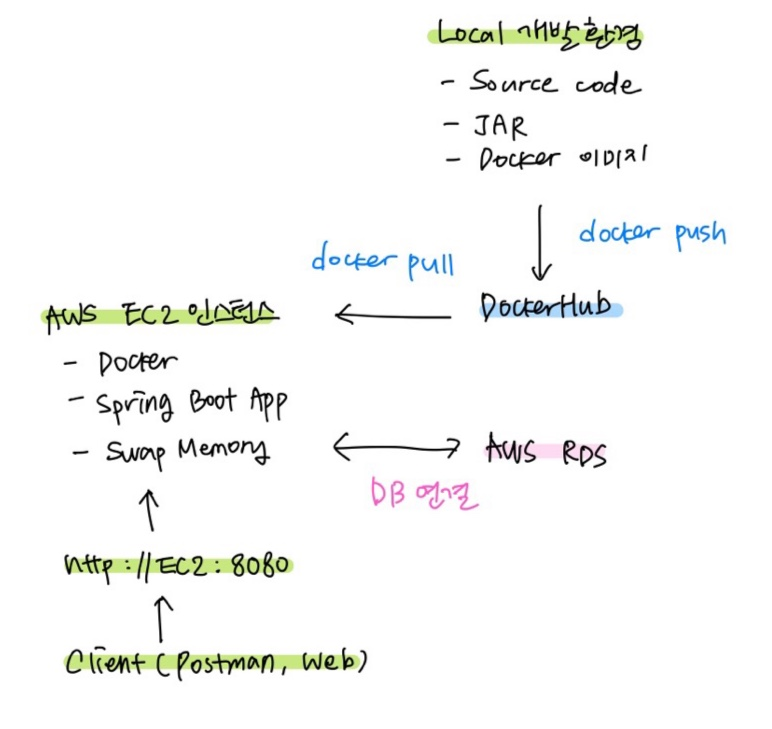 Local 개발환경
- Source code
- JAR
- Docker 이미지
docker push
docker pull
DockerHub
AWS EC2 인스턴스
- Docker
- Spring Boot App
- Swap Memory
AWS RDS
DB 연결
http://EC2:8080
Client (Postman, Web)